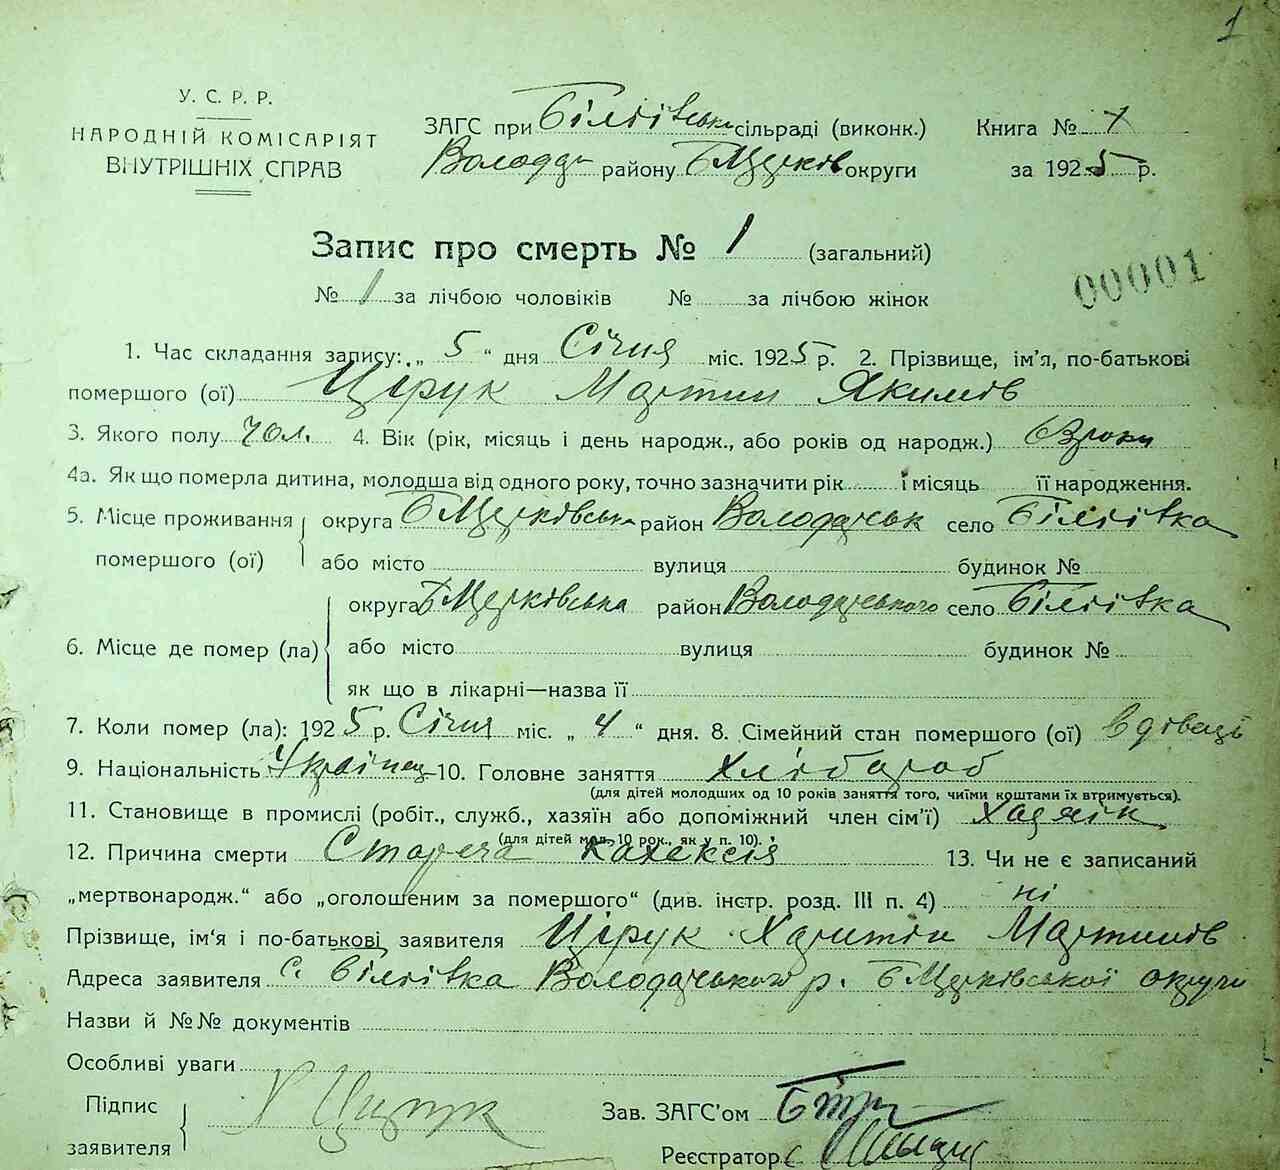 1
У. С. Р. Р.
НАРОДНІЙ КОМІСАРІЯТ
ВНУТРІШНІХ СПРАВ
ЗАГС при Біліївськ сільраді (виконк.) Книга № 1
Володар району БЦерків округи за 1925 р.
Запис про смерть № 1 (загальний)
00001
№ 1 за лічбою чоловіків № за лічбою жінок
1. Час складання запису: „ 5 “ дня Січня міс. 1925 р. 2. Прізвище, ім’я, по-батькові
помершого (ої) Цірук Мартин Якимів
3. Якого полу чол. 4. Вік (рік, місяць і день народж., або років од народж.) роки
4а. Як що померла дитина, молодша від одного року, точно зазначити рік і місяць її народження.
5. Місце проживання помершого (ої) округа БЦерківська район Володарськ село Біліївка
або місто вулиця будинок №
6. Місце де помер (ла) округа БЦерківська район Володарського село Біліївка
або місто вулиця будинок №
як що в лікарні—назва її
7. Коли помер (ла): 1925 р. Січня міс. „ 4 “ дня. 8. Сімейний стан помершого (ої) вдівець
9. Національність Українец 10. Головне заняття Хлібороб
(для дітей молодших од 10 років заняття того, чиїми коштами їх втримується).
11. Становище в промислі (робіт., служб., хазяїн або допоміжний член сім’ї) Хазяїн
(для дітей мол. 10 рок., як у п. 10).
12. Причина смерти Стареча кахексія 13. Чи не є записаний
„мертвонародж.“ або „оголошеним за помершого“ (див. інстр. розд. III п. 4) ні
Прізвище, ім‘я і по-батькові заявителя Цірук Харитін Мартинів
Адреса заявителя с. Біліївка Володарського р. БЦерківської округи
Назви й №№ документів
Особливі уваги
Підпис заявителя Х Цирук
Зав. ЗАГС’ом
Реєстратор